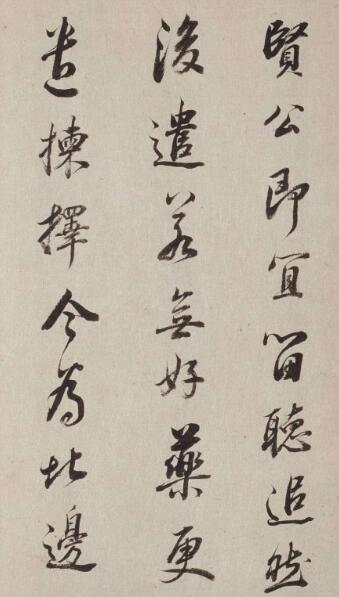 賢公即宜留聽追然
後遣若無好藥更
遣揀擇今為此邊